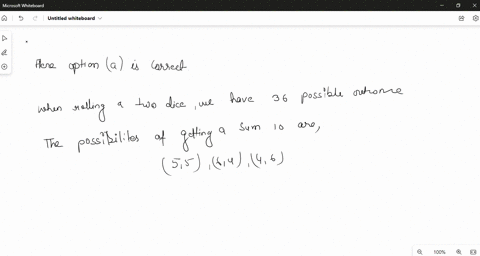 Microsoft Whiteboard
Untitled whiteboard
Here option (a) is correct
when rolling a two dice, we have 36 possible outcome
The possibilites of getting a sum 10 are,
(5,5), (6,4), (4,6)
100%